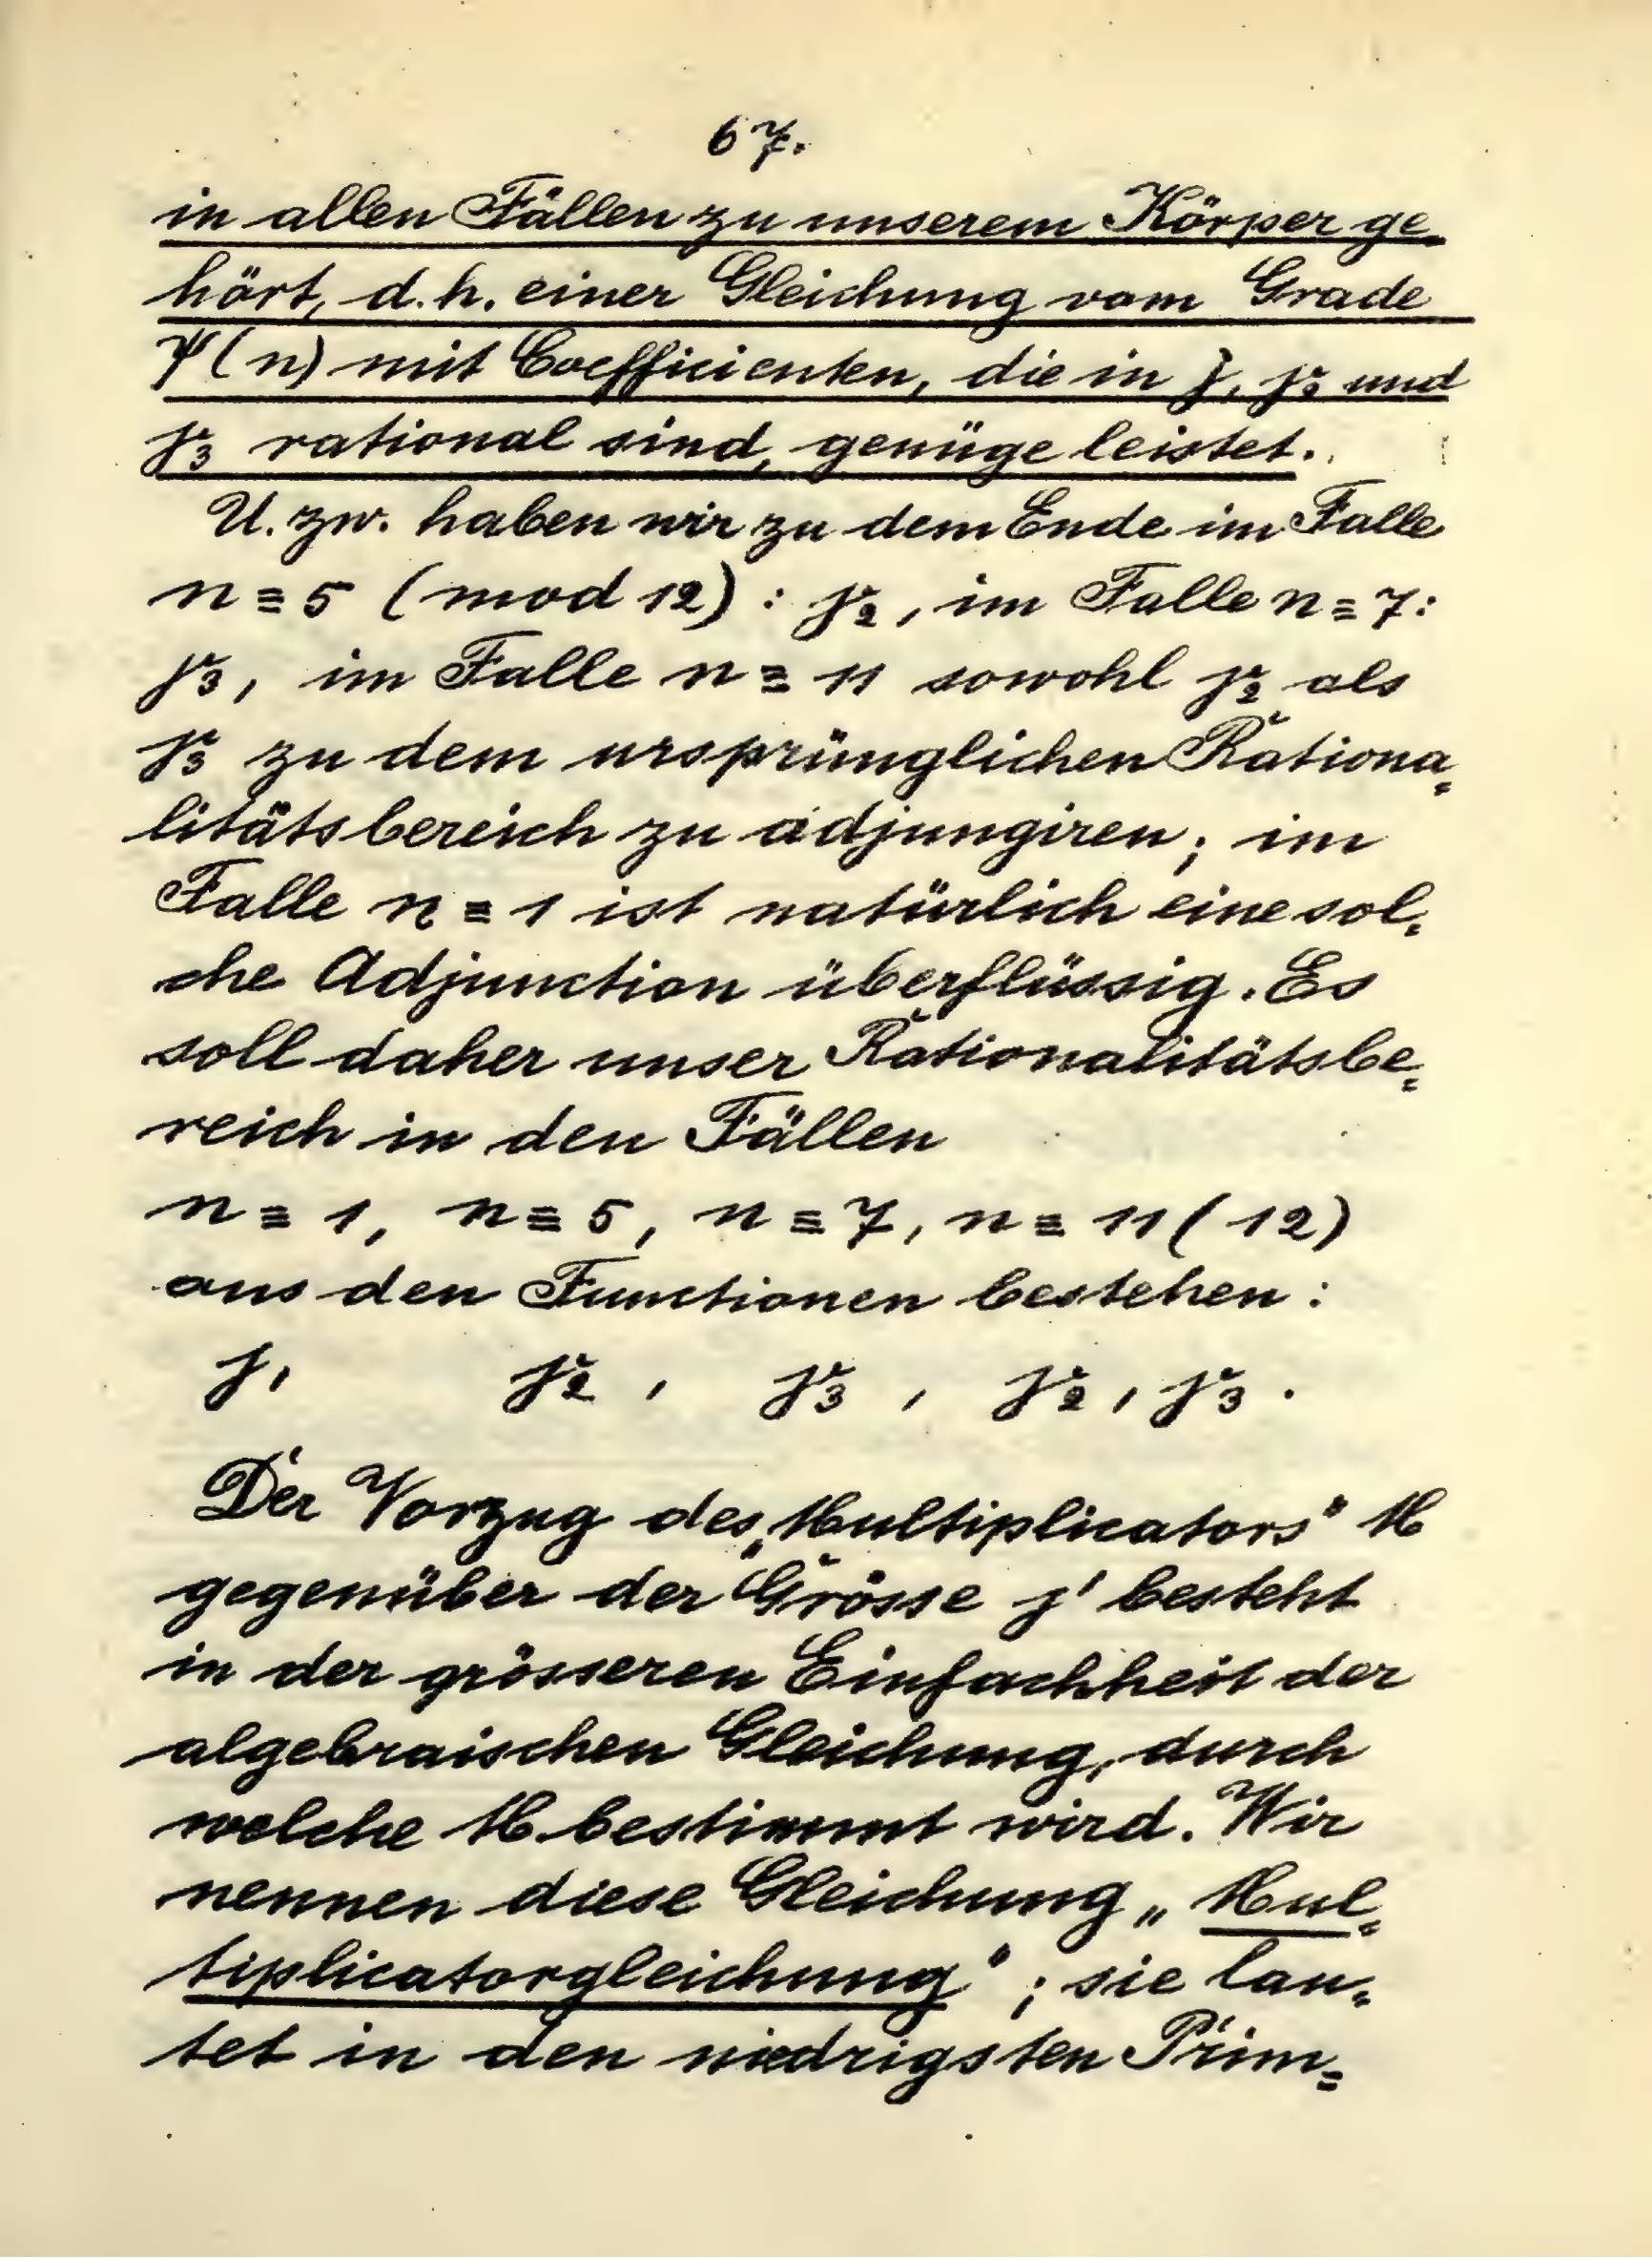 67.
in allen Fällen zu unserem Körper ge-
hört, d.h. einer Gleichung vom Grade
ψ(n) mit Coefficienten, die in j, γ₂ und
γ₃ rational sind, genüge leistet.
U. zw. haben wir zu dem Ende im Falle
n ≡ 5 (mod 12) : γ₂, im Falle n ≡ 7:
γ₃, im Falle n ≡ 11 sowohl γ₂ als
γ₃ zu dem ursprünglichen Rationa-
litätsbereich zu adjungiren; im
Falle n ≡ 1 ist natürlich eine sol-
che Adjunction überflüssig. Es
soll daher unser Rationalitätsbe-
reich in den Fällen
n ≡ 1, n ≡ 5, n ≡ 7, n ≡ 11 (12)
aus den Functionen bestehen:
j, γ₂, γ₃, γ₂, γ₃.
Der Vorzug des „Multiplicators" M
gegenüber der Grösse j' besteht
in der grösseren Einfachheit der
algebraischen Gleichung, durch
welche M bestimmt wird. Wir
nennen diese Gleichung „Mul-
tiplicatorgleichung"; sie lau-
tet in den niedrigsten Prim-